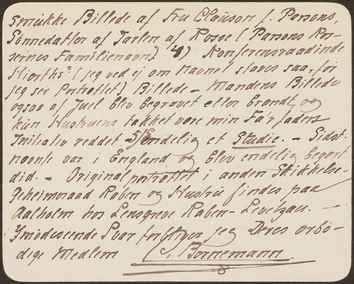 smukke Billede af Fru Clauson f. Persons,
Sønnedatter af Jarlen af Rosse (Parsons Ros-
sernes Familienavn) Konferensraadinde
(jeg ved ej om Navnet staves saa, før
jeg ser Portrættet) Billede – Mandens Billede
ogsaa af Juel blev begravet eller brændt, og
kun Hustruens takket være min Farfaders
Initiativ reddet – endelig et Studie. – Sidst-
nævnte var i England og blev endelig bragt
did. – Original portrættet i anden Skikkelse
Geheimeraad Raben og Hustru findes paa
Aalholm hos Lensgreve Raben-Levetzau. –
Imødeseende Svar forbliver jeg Deres ærbø-
dige Medlem C. Bornemann.